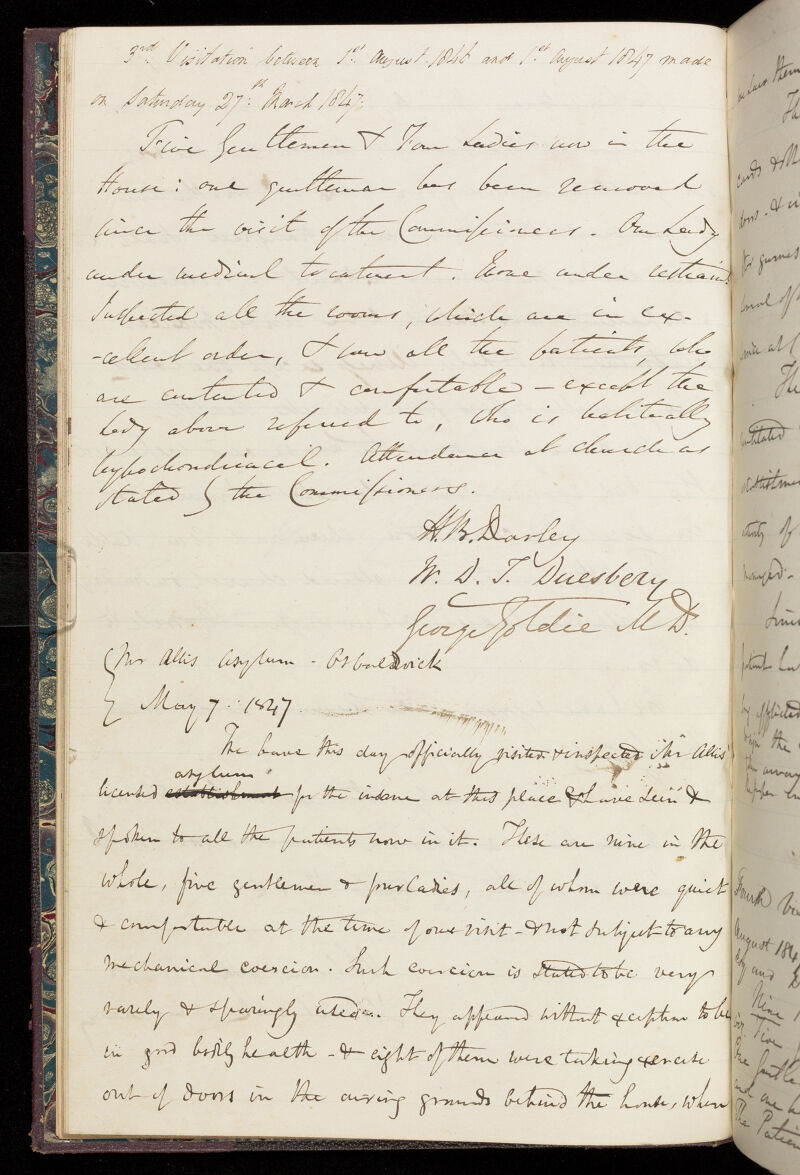 3rd. Visitation between 1st. August 1846 and 1st. August 1847 made
on Saturday 27th. March 1847.
Five Gentlemen & Four Ladies now in the
House: one gentleman has been removed
since the visit of the Commissioners. One Lady
under medical treatment. None under restraint.
Inspected all the rooms, which are in ex-
-cellent order, & saw all the patients, who
are contented & comfortable - except the
lady above refered to, who is habitually
hypochondriacal. Attendance at church as
stated by the Commissioners.
H. B. Darley
W. D. T. Duesbery
George Goldie M.D.
Mr Allis Asylum - Osbaldwick
May 7. 1847
We have this day officially visited & inspected Mr Allis'
asylum
licensed establishment for the insane at this place & have seen &
spoken to all the patients now in it. These are nine in the
whole, five gentlemen & four ladies, all of whom were quiet
& comfortable at the time of our visit - & not subject to any
mechanical coercion. Such coercion is stated to be very
rarely & sparingly used. They appeared without exception to be
in good bodily health - & eight of them were taking exercise
out of doors in the airing grounds behind the house, when